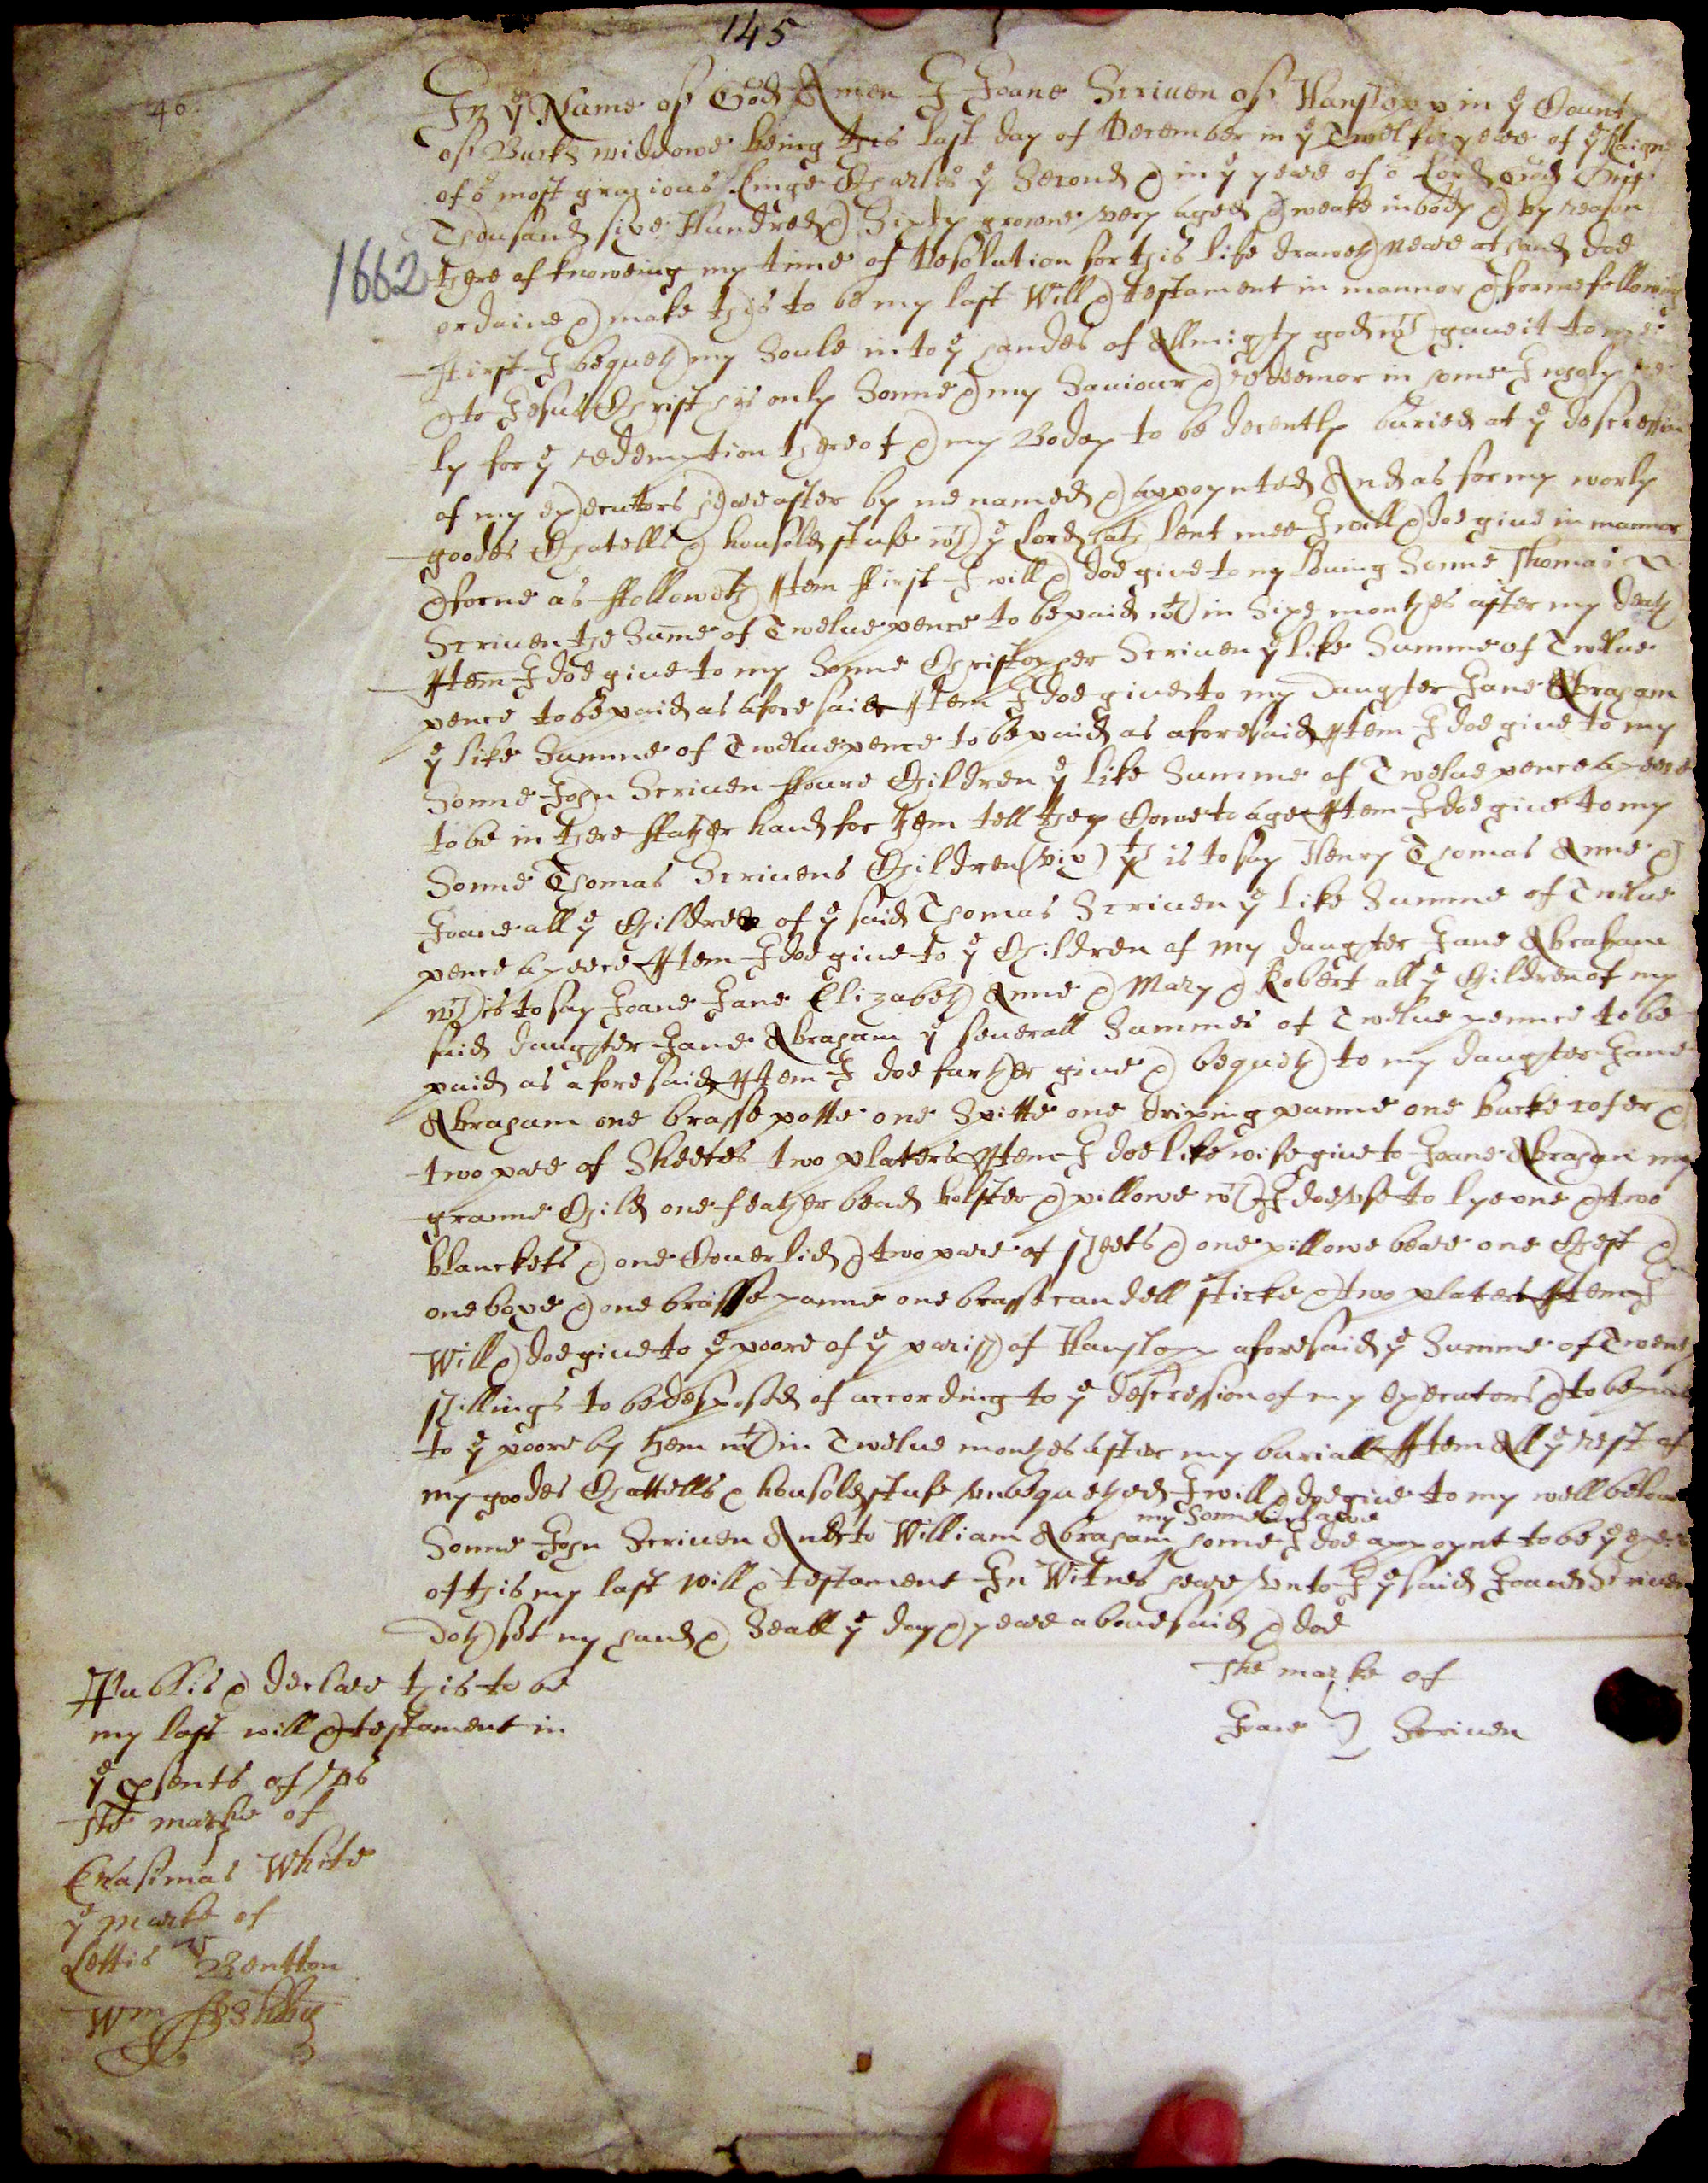 145
40
In ye Name of God Amen I Joane Scriuen of Hanslopp in ye County
of Bucks widdowe being this last day of December in ye Twelfth yeare of ye Raigne
of or most grazious Kinge Charles ye Second & in ye yeare of or Lord God One
Thousand sixe Hundred & Sixty growne very aged & weake in body & by reason
1662
there of knoweing my time of Desolution for this life draweth neare at hand doe
ordaine & make this to be my last Will & testament in mannor & forme following
First I bequeth my Soule into ye handes of Allmighty god wch gaue it to mee
& to Jesus Christ his only Sonne & my Sauiour & redeemor in home I wholy
ly for ye redemption thereof & my Bodey to be decently buried at ye descression
of my executors heareafter by me named & appoynted And as for my worly
goodes Chatells & housold stufe wch ye Lord hath lent mee I will & doe giue in mannor
& forme as ffolloweth Item ffirst I will & doe giue to my Louing Sonne Thomas
Scriuen the Sume of Twelue pence to be paid wth in Sixe monthes after my death
Item I doe giue to my Sonne Christopher Scriuen ye like Summe of Twelue
pence to be paid as afore said Item I doe giue to my Daughter Jane Abraham
ye like Summe of Twelue pence to be paid as aforesaid Item I doe giue to my
Sonne John Scriuen ffoure Children ye like Summe of Twelue pence apeece
to be in there ffather hand for them tell they Come to age Item I doe giue to my
Sonne Thomas Scriuens Children (vix) yt is to say Henry Thomas Anne &
Joane all ye Children of ye said Thomas Scriuen ye like Summe of Twelue
pence apeece Item I doe giue to ye Children of my daughter Jane Abraham
wch is to say Joane Jane Elizabeth Anne & Mary & Robert all ye Children of my
said daughter Jane Abraham ye seuerall Summes of Twelue pennce to be
paid as aforesaid Item I doe further giue & bequeth to my daughter Jane
Abraham one brasse potte one Spitte one driping panne one bucke cofer &
two pare of Sheetes two platers Item I doe likewise giue to Joane Abraham my
granne Child one feather bead bolster & pillowe wch I doe vse to lye one & two
blanckets & one Couerlid & two pare of sheets & one pillowe beare one Chest &
one boxe & one brasse panne one brasse candell sticke & two platers Item I
Will & doe giue to ye poore of ye parish of Hanslopp aforesaid ye Summe of Twenty
shillings to be desposed of according to ye descression of my executors & to be paid
to ye poore by them wth in Twelue monthes after my buriall Item All ye rest of
my goodes Chattells & housold stufe vnbequethed I will & doe giue to my well beloued
my Sonne in Lawe
Sonne John Scriuen And to William Abraham home I doe appoynt to be ye
of this my last will & testament In Witnes heare vnto I ye said Joane Scriuen
Doth set my hand & Seall ye day & yeare aboue said & doe
Publis & declare this to be
my last will & testament in
ye psents of
The marke of
Erasimas White
ye marke of
Lettis Bentton
Wm
The marke of
Joane Scriuen